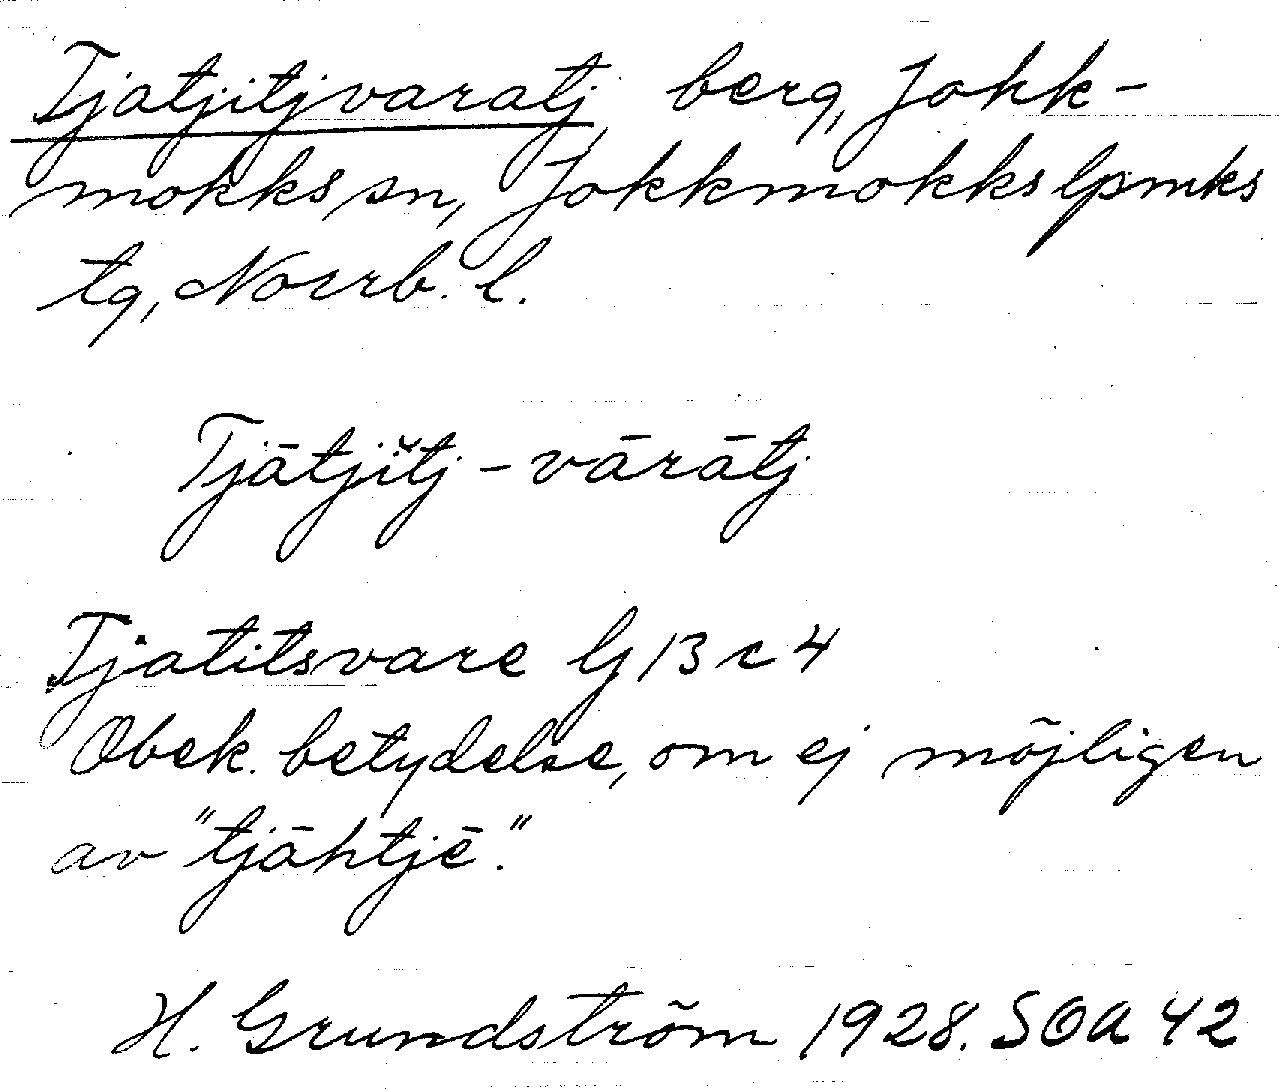 Tjatjitjvaratj, berg, Jokk-
mokks sn, Jokkmokks lpmks
tg, Norrb. l.
Tjātjĭtj-vārātj
Tjatitsvare G 13 c 4
Obek. betydelse, om ej möjligen
av "tjāhtjē".
H. Grundström 1928. SOA 42